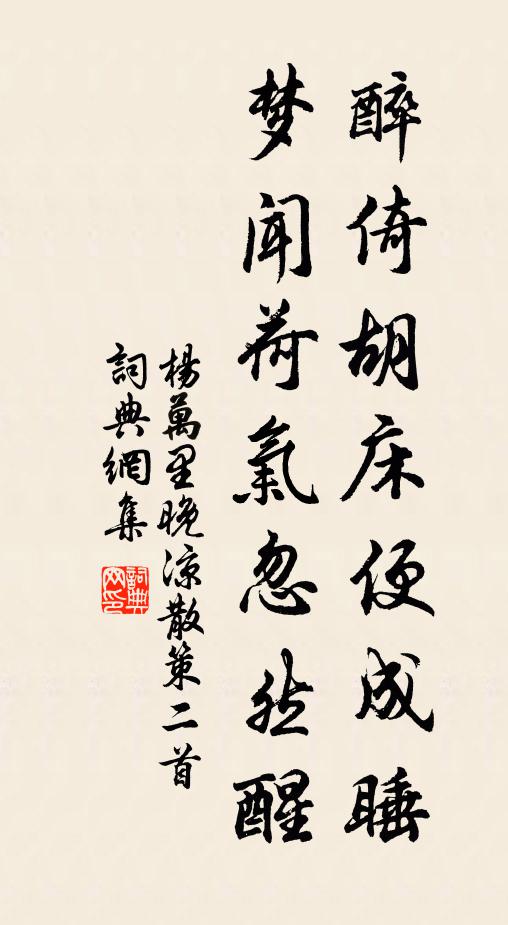 醉倚胡床便成睡
梦闻荷氣忽然醒
楊萬里晚凉散策二首
詞典網集
詞典網印